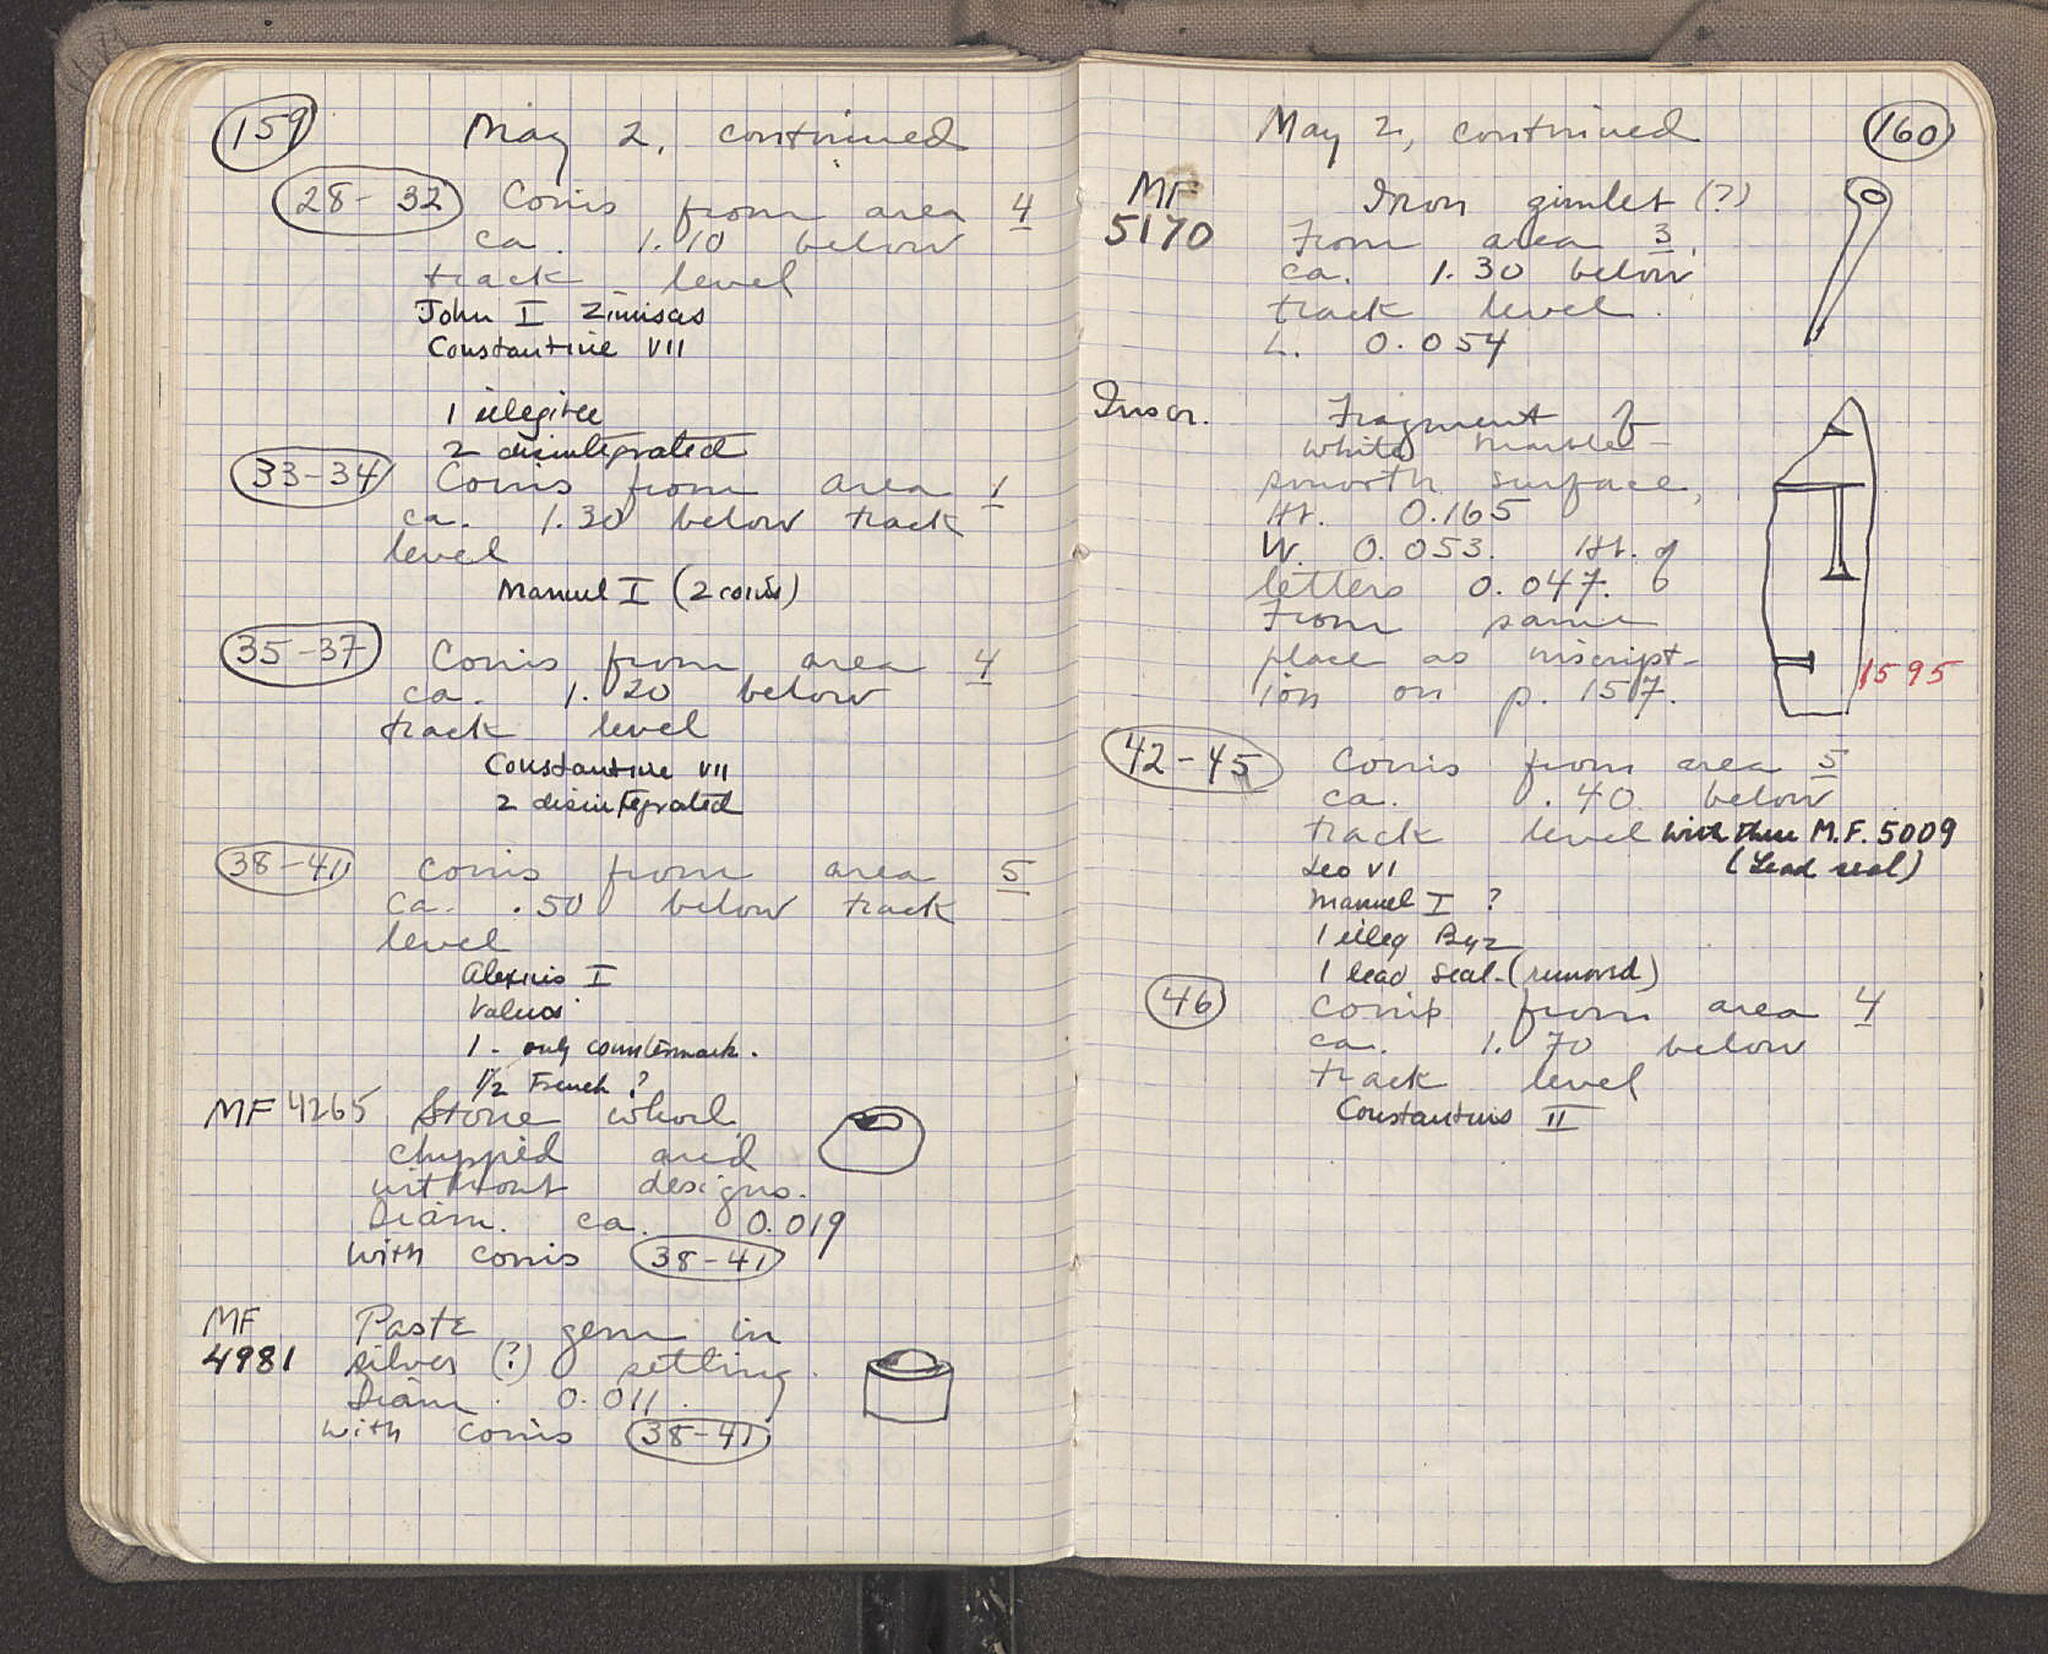 159
May 2, continued
28-32 Coins from area 4
ca. 1.10 below
track level
John I Zimisas
Constantine VII
1 illegible
2 disintegrated
33-34 Coins from area 1
ca. 1.30 below track
level
Manuel I (2 coins)
35-37 Coins from area 4
ca. 1.20 below
track level
Constantine VII
2 disintegrated
38-41 Coins from area 5
ca. .50 below track
level
Alexius I
Valens
1 - only countermark.
1/2 French ?
MF 4265 Stone whorl
chipped and
without designs.
Diam. ca. 0.019
with coins 38-41
MF 4981 Paste gem in
silver (?) setting.
Diam. 0.011.
with coins 38-41
160
May 2, continued
MF 5170 Iron gimlet (?)
From area 3,
ca. 1.30 below
track level.
L. 0.054
Inscr. Fragment of
white marble -
smooth surface,
Ht. 0.165
W. 0.053. Ht. of
letters 0.047.
From same
place as inscript-
ion on p. 157.
1595
42-45 Coins from area 5
ca. .40 below
track level with these M.F. 5009
(Lead seal)
Leo VI
Manuel I ?
1 illeg Byz
1 lead seal - (removed)
46 Coin from area 4
ca. 1.70 below
track level
Constantius II